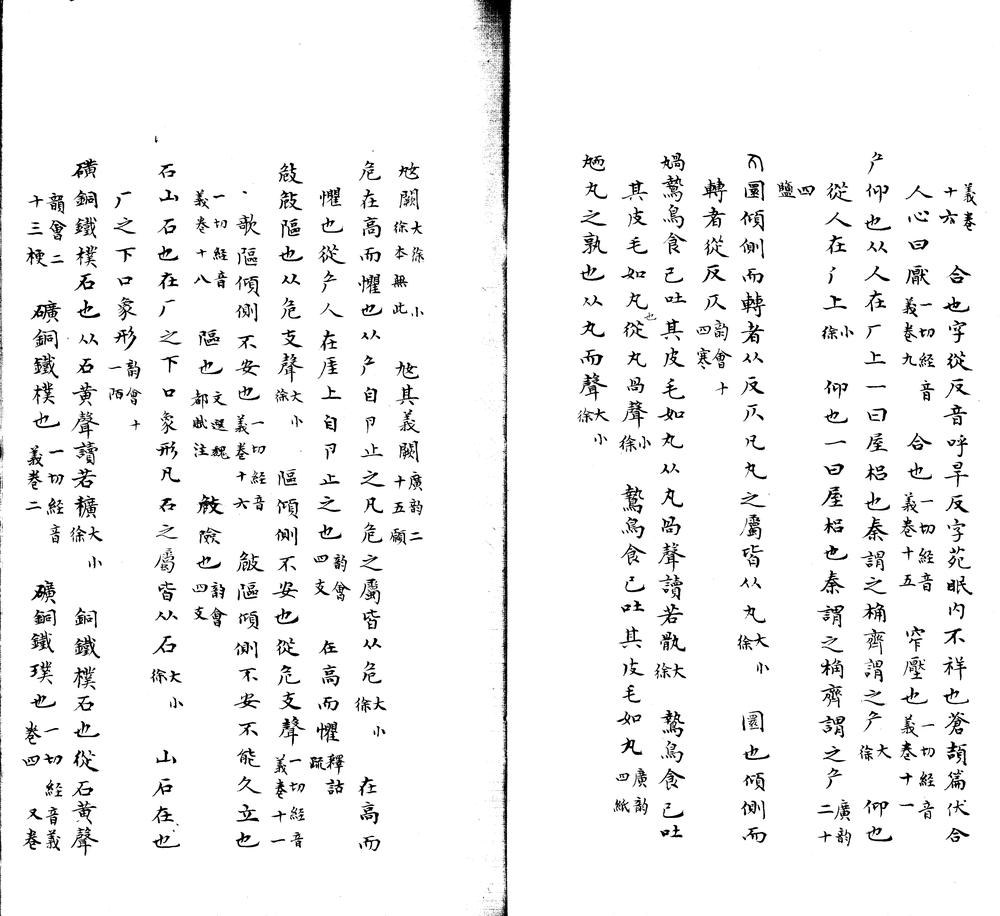 義卷十六 合也字從反音呼旱反字苑眠內不祥也蒼頡篇伏合
人心曰厭 一切經音義卷九 合也 一切經音義卷十五 窄壓也 一切經音義卷十一
厃仰也从人在厂上一曰屋梠也秦謂之桷齊謂之厃 大徐 仰也
從人在厂上 小徐 仰也一曰屋梠也秦謂之桷齊謂之厃 廣韵二十
四鹽
丸圜傾側而轉者从反仄凡丸之屬皆从丸 大徐小 圜也傾側而
轉者從反仄 韵會十四寒
鷙鳥食已吐其皮毛如丸从丸咼聲讀若骫 大徐 鷙鳥食已吐
其皮毛如丸也從丸咼聲 小徐 鷙鳥食已吐其皮毛如丸 廣韵四紙
丸之孰也从丸而聲 大徐小
闕 大徐小徐本無此 其義闕 廣韵二十五願
危在高而懼也从厃自卪止之凡危之屬皆从危 大徐小 在高而
懼也從厃人在厓上自卪止之也 韵會四支 在高而懼 釋詁疏
攲攲㩻也从危支聲 大徐小 㩻傾側不安也從危支聲 一切經音義卷十一
攲㩻傾側不安也 一切經音義卷十六 攲㩻傾側不安不能久立也
一切經音義卷十八 㩻也 文選魏都賦注 攲險也 韵會四支
石山石也在厂之下口象形凡石之屬皆从石 大徐小 山石在也
厂之下口象形 韵會十一陌
磺銅鐵樸石也从石黃聲讀若穬 大徐小 銅鐵樸石也從石黃聲
韻會二十三梗 礦銅鐵樸也 一切經音義卷二 礦銅鐵璞也 一切經音義卷四又卷